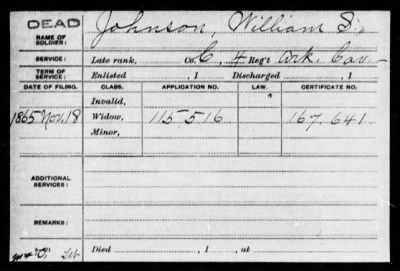 DEAD
NAME OF SOLDIER: Johnson, William S.,
SERVICE: Late rank, Co. C, 4 Reg't Ark. Cav.
TERM OF SERVICE: Enlisted , 1 Discharged , 1
DATE OF FILING. CLASS. APPLICATION NO. LAW. CERTIFICATE NO.
Invalid,
1865 Nov. 18 Widow, 115516 167.641
Minor,
ADDITIONAL SERVICES:
REMARKS:
Died , 1 , at